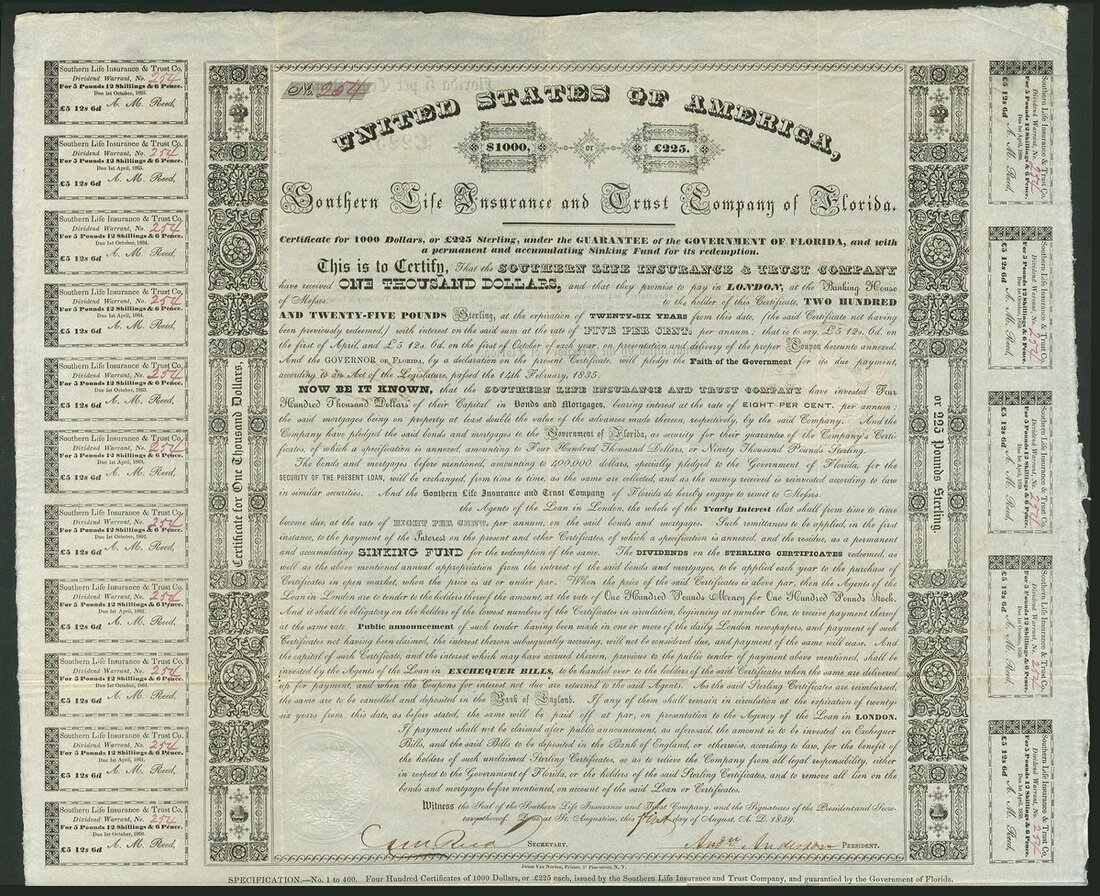 Southern Life Insurance & Trust Co.
Dividend Warrant, No. 254
For 5 Pounds 12 Shillings & 6 Pence.
Due 1st October, 1865.
£5 12s 6d A. M. Reed,
Southern Life Insurance & Trust Co.
Dividend Warrant, No. 254
For 5 Pounds 12 Shillings & 6 Pence.
Due 1st April, 1865.
£5 12s 6d A. M. Reed,
Southern Life Insurance & Trust Co.
Dividend Warrant, No. 254
For 5 Pounds 12 Shillings & 6 Pence.
Due 1st October, 1864.
£5 12s 6d A. M. Reed,
Southern Life Insurance & Trust Co.
Dividend Warrant, No. 254
For 5 Pounds 12 Shillings & 6 Pence.
Due 1st April, 1864.
£5 12s 6d A. M. Reed,
Southern Life Insurance & Trust Co.
Dividend Warrant, No. 254
For 5 Pounds 12 Shillings & 6 Pence.
Due 1st October, 1863.
£5 12s 6d A. M. Reed,
Southern Life Insurance & Trust Co.
Dividend Warrant, No. 254
For 5 Pounds 12 Shillings & 6 Pence.
Due 1st April, 1863.
£5 12s 6d A. M. Reed,
Southern Life Insurance & Trust Co.
Dividend Warrant, No. 254
For 5 Pounds 12 Shillings & 6 Pence.
Due 1st October, 1862.
£5 12s 6d A. M. Reed,
Southern Life Insurance & Trust Co.
Dividend Warrant, No. 254
For 5 Pounds 12 Shillings & 6 Pence.
Due 1st April, 1862.
£5 12s 6d A. M. Reed,
Southern Life Insurance & Trust Co.
Dividend Warrant, No. 254
For 5 Pounds 12 Shillings & 6 Pence.
Due 1st October, 1861.
£5 12s 6d A. M. Reed,
Southern Life Insurance & Trust Co.
Dividend Warrant, No. 254
For 5 Pounds 12 Shillings & 6 Pence.
Due 1st April, 1861.
£5 12s 6d A. M. Reed,
Southern Life Insurance & Trust Co.
Dividend Warrant, No. 254
For 5 Pounds 12 Shillings & 6 Pence.
Due 1st October, 1860.
£5 12s 6d A. M. Reed,
Certificate for One Thousand Dollars,
No. 254
UNITED STATES OF AMERICA,
$1000, or £225.
Southern Life Insurance and Trust Company of Florida.
Certificate for 1000 Dollars, or £225 Sterling, under the GUARANTEE of the GOVERNMENT OF FLORIDA, and with
a permanent and accumulating Sinking Fund for its redemption.
This is to Certify, That the SOUTHERN LIFE INSURANCE & TRUST COMPANY
have received ONE THOUSAND DOLLARS, and that they promise to pay in LONDON, at the Banking House
of Messrs. to the holder of this Certificate, TWO HUNDRED
AND TWENTY-FIVE POUNDS Sterling, at the expiration of TWENTY-SIX YEARS from this date, (the said Certificate not having
been previously redeemed,) with interest on the said sum at the rate of FIVE PER CENT. per annum; that is to say, £5 12s. 6d. on
the first of April, and £5 12s. 6d. on the first of October of each year, on presentation and delivery of the proper Coupon hereunto annexed.
And the GOVERNOR OF FLORIDA, by a declaration on the present Certificate, will pledge the Faith of the Government for its due payment,
according to an Act of the Legislature, passed the 14th February, 1835.
NOW BE IT KNOWN, that the SOUTHERN LIFE INSURANCE AND TRUST COMPANY have invested Four
Hundred Thousand Dollars of their Capital in Bonds and Mortgages, bearing interest at the rate of EIGHT PER CENT. per annum;
the said mortgages being on property at least double the value of the advances made thereon, respectively, by the said Company. And the
Company have pledged the said bonds and mortgages to the Government of Florida, as security for their guarantee of the Company's Certi-
ficates, of which a specification is annexed, amounting to Four Hundred Thousand Dollars, or Ninety Thousand Pounds Sterling.
The bonds and mortgages before mentioned, amounting to 400,000 dollars, specially pledged to the Government of Florida, for the
SECURITY OF THE PRESENT LOAN, will be exchanged, from time to time, as the same are collected, and as the money received is reinvested according to law
in similar securities. And the Southern Life Insurance and Trust Company of Florida do hereby engage to remit to Messrs.
the Agents of the Loan in London, the whole of the Yearly Interest that shall from time to time
become due, at the rate of EIGHT PER CENT. per annum, on the said bonds and mortgages. Such remittances to be applied, in the first
instance, to the payment of the Interest on the present and other Certificates, of which a specification is annexed, and the residue, as a permanent
and accumulating SINKING FUND for the redemption of the same. The DIVIDENDS on the STERLING CERTIFICATES redeemed, as
well as the above mentioned annual appropriation from the interest of the said bonds and mortgages, to be applied each year to the purchase of
Certificates in open market, when the price is at or under par. When the price of the said Certificates is above par, then the Agents of the
Loan in London are to tender to the holders thereof the amount, at the rate of One Hundred Pounds Money for One Hundred Pounds Stock.
And it shall be obligatory on the holders of the lowest numbers of the Certificates in circulation, beginning at number One, to receive payment thereof
at the same rate. Public announcement of such tender having been made in one or more of the daily London newspapers, and payment of such
Certificates not having been claimed, the interest thereon subsequently accruing, will not be considered due, and payment of the same will cease. And
the capital of such Certificate, and the interest which may have accrued thereon, previous to the public tender of payment above mentioned, shall be
invested by the Agents of the Loan in EXCHEQUER BILLS, to be handed over to the holders of the said Certificates when the same are delivered
up for payment, and when the Coupons for interest not due are returned to the said Agents. As the said Sterling Certificates are reimbursed,
the same are to be cancelled and deposited in the Bank of England. If any of them shall remain in circulation at the expiration of twenty-
six years from this date, as before stated, the same will be paid off at par, on presentation to the Agency of the Loan in LONDON.
If payment shall not be claimed after public announcement, as aforesaid, the amount is to be invested in Exchequer
Bills, and the said Bills to be deposited in the Bank of England, or otherwise, according to law, for the benefit of
the holders of such unclaimed Sterling Certificates, so as to relieve the Company from all legal responsibility, either
in respect to the Government of Florida, or the holders of the said Sterling Certificates, and to remove all lien on the
bonds and mortgages before mentioned, on account of the said Loan or Certificates.
Witness the Seal of the Southern Life Insurance and Trust Company, and the Signature of the President and Secre-
tary thereof. Done at St. Augustine, this first day of August, A. D. 1839.
SECRETARY. Andw Anderson PRESIDENT.
SPECIFICATION.—No. 1 to 400. Four Hundred Certificates of 1000 Dollars, or £225 each, issued by the Southern Life Insurance and Trust Company, and guarantied by the Government of Florida.
or 225 Pounds Sterling.
Southern Life Insurance & Trust Co.
Dividend Warrant, No. 254
For 5 Pounds 12 Shillings & 6 Pence.
£5 12s 6d A. M. Reed,
Southern Life Insurance & Trust Co.
Dividend Warrant, No. 254
For 5 Pounds 12 Shillings & 6 Pence.
£5 12s 6d A. M. Reed,
Southern Life Insurance & Trust Co.
Dividend Warrant, No. 254
For 5 Pounds 12 Shillings & 6 Pence.
£5 12s 6d A. M. Reed,
Southern Life Insurance & Trust Co.
Dividend Warrant, No. 254
For 5 Pounds 12 Shillings & 6 Pence.
£5 12s 6d A. M. Reed,
Southern Life Insurance & Trust Co.
Dividend Warrant, No. 254
For 5 Pounds 12 Shillings & 6 Pence.
£5 12s 6d A. M. Reed,